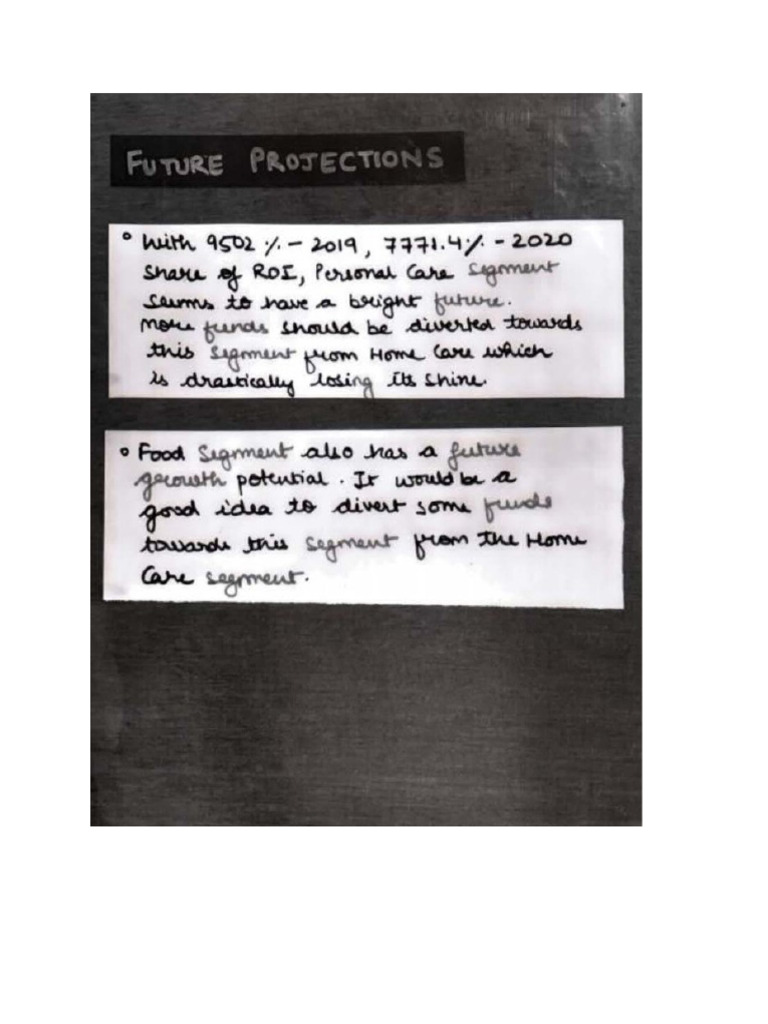 FUTURE PROJECTIONS
° With 9502 % - 2019, 7771.4% - 2020
Share of ROI, Personal Care Segment
seems to have a bright future.
More funds should be diverted towards
this segment from Home Care which
is drastically losing its shine.
° Food Segment also has a future
growth potential. It would be a
good idea to divert some funds
towards this segment from the Home
Care segment.